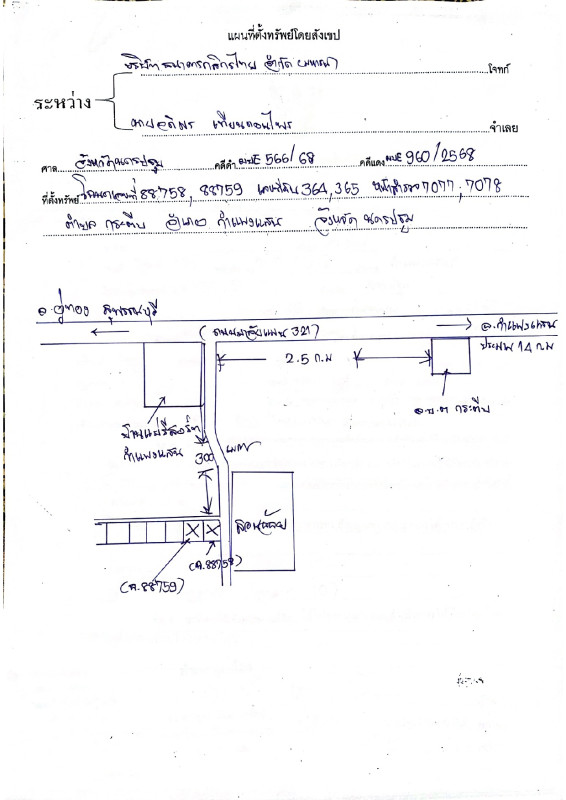 แผนที่ตั้งทรัพย์โดยสังเขป
บริษัท ธนาคารกสิกรไทย จำกัด (มหาชน) โจทก์
ระหว่าง
เทียนดอนไพร จำเลย
ศาล จังหวัดนครปฐม คดีดำ ผบE 566/68 คดีแดง ผบE 960/2568
ที่ตั้งทรัพย์ โฉนดเลขที่ 88758, 88759 เลขที่ดิน 364, 365 หน้าสำรวจ 7077, 7078
ตำบล กระตีบ อำเภอ กำแพงแสน จังหวัด นครปฐม
อ.อู่ทอง สุพรรณบุรี
(ถนนมาลัยแมน 321)
อ.กำแพงแสน
ประมาณ 14 ก.ม
2.5 ก.ม
อ.บ.ต กระตีบ
กำแพงแสน
300 เมตร
สวนกล้วย
(ฉ.88758)
(ฉ.88759)